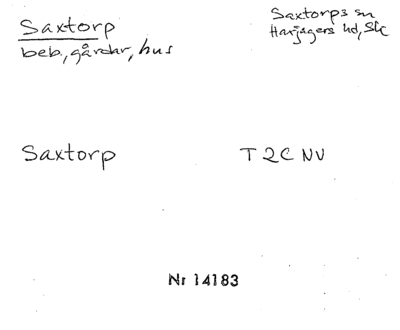 Saxtorp
beb., gårdar, hus
Saxtorps sn
Harjagers hd, Sk
Saxtorp T2C NV
Nr 14183